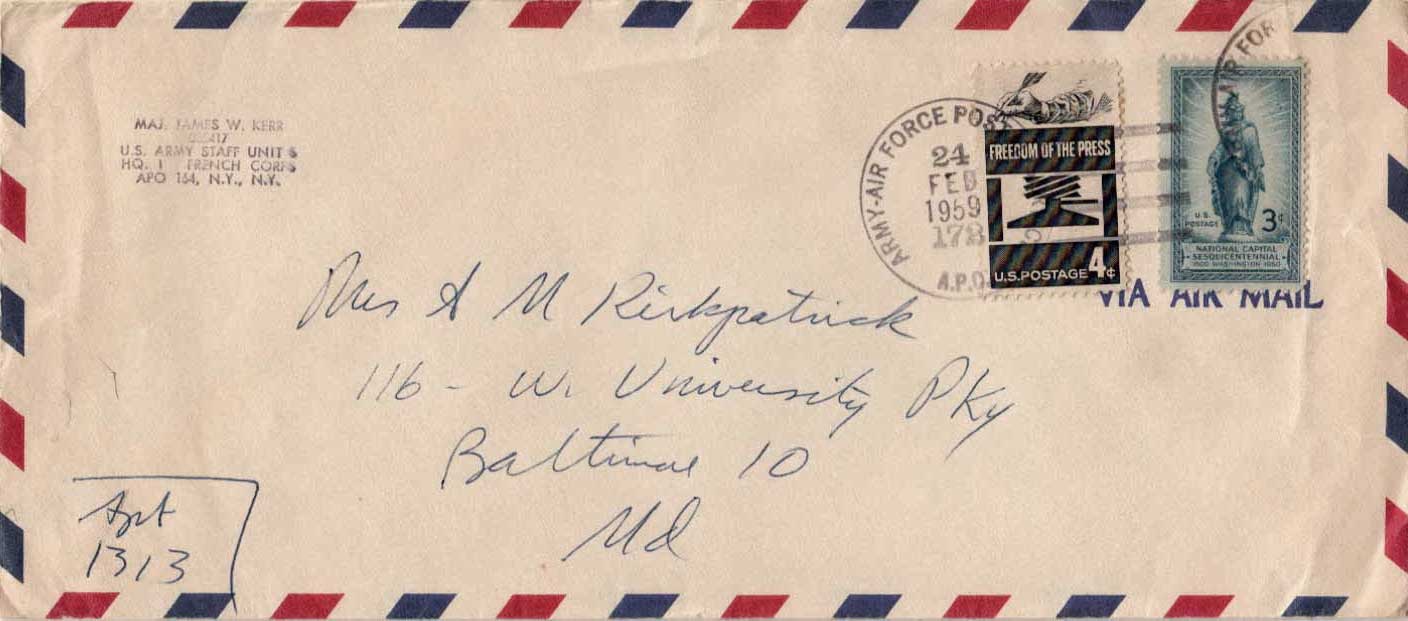 MAJ. JAMES W. KERR
U.S. ARMY STAFF UNIT 6
HQ. I FRENCH CORPS
APO 164, N.Y., N.Y.
ARMY-AIR FORCE POST
24
FEB
1959
172
A.P.O.
FREEDOM OF THE PRESS
U.S. POSTAGE 4¢
AIR FOR
U.S.
POSTAGE 3¢
NATIONAL CAPITAL
SESQUICENTENNIAL
1800 WASHINGTON 1950
VIA AIR MAIL
Mrs A M Kirkpatrick
116 - W. University PKy
Baltimore 10
Md
Apt
1313